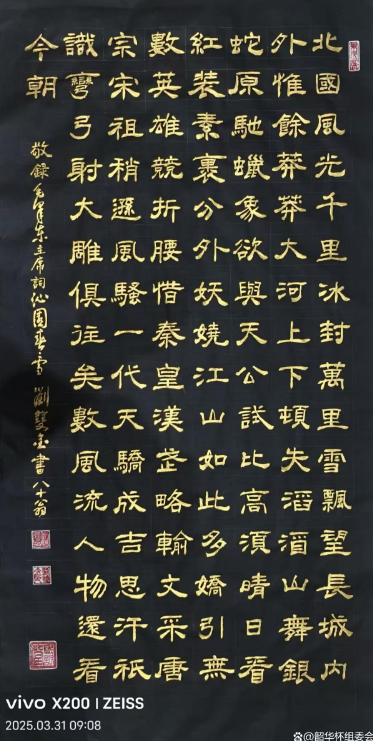 北國風光千里冰封萬里雪飄望長城内
外惟餘莽莽大河上下頓失滔滔山舞銀
蛇原馳蠟象欲與天公試比高須晴日看
紅装素裹分外妖嬈江山如此多嬌引無
數英雄競折腰惜秦皇漢武略輸文采唐
宗宋祖稍遜風騷一代天驕成吉思汗祇
識彎弓射大雕俱往矣數風流人物還看
今朝
敬錄毛澤東主席詞沁園春雪 劉雙書八十翁
vivo X200 | ZEISS
2025.03.31 09:08
@韶华杯组委会